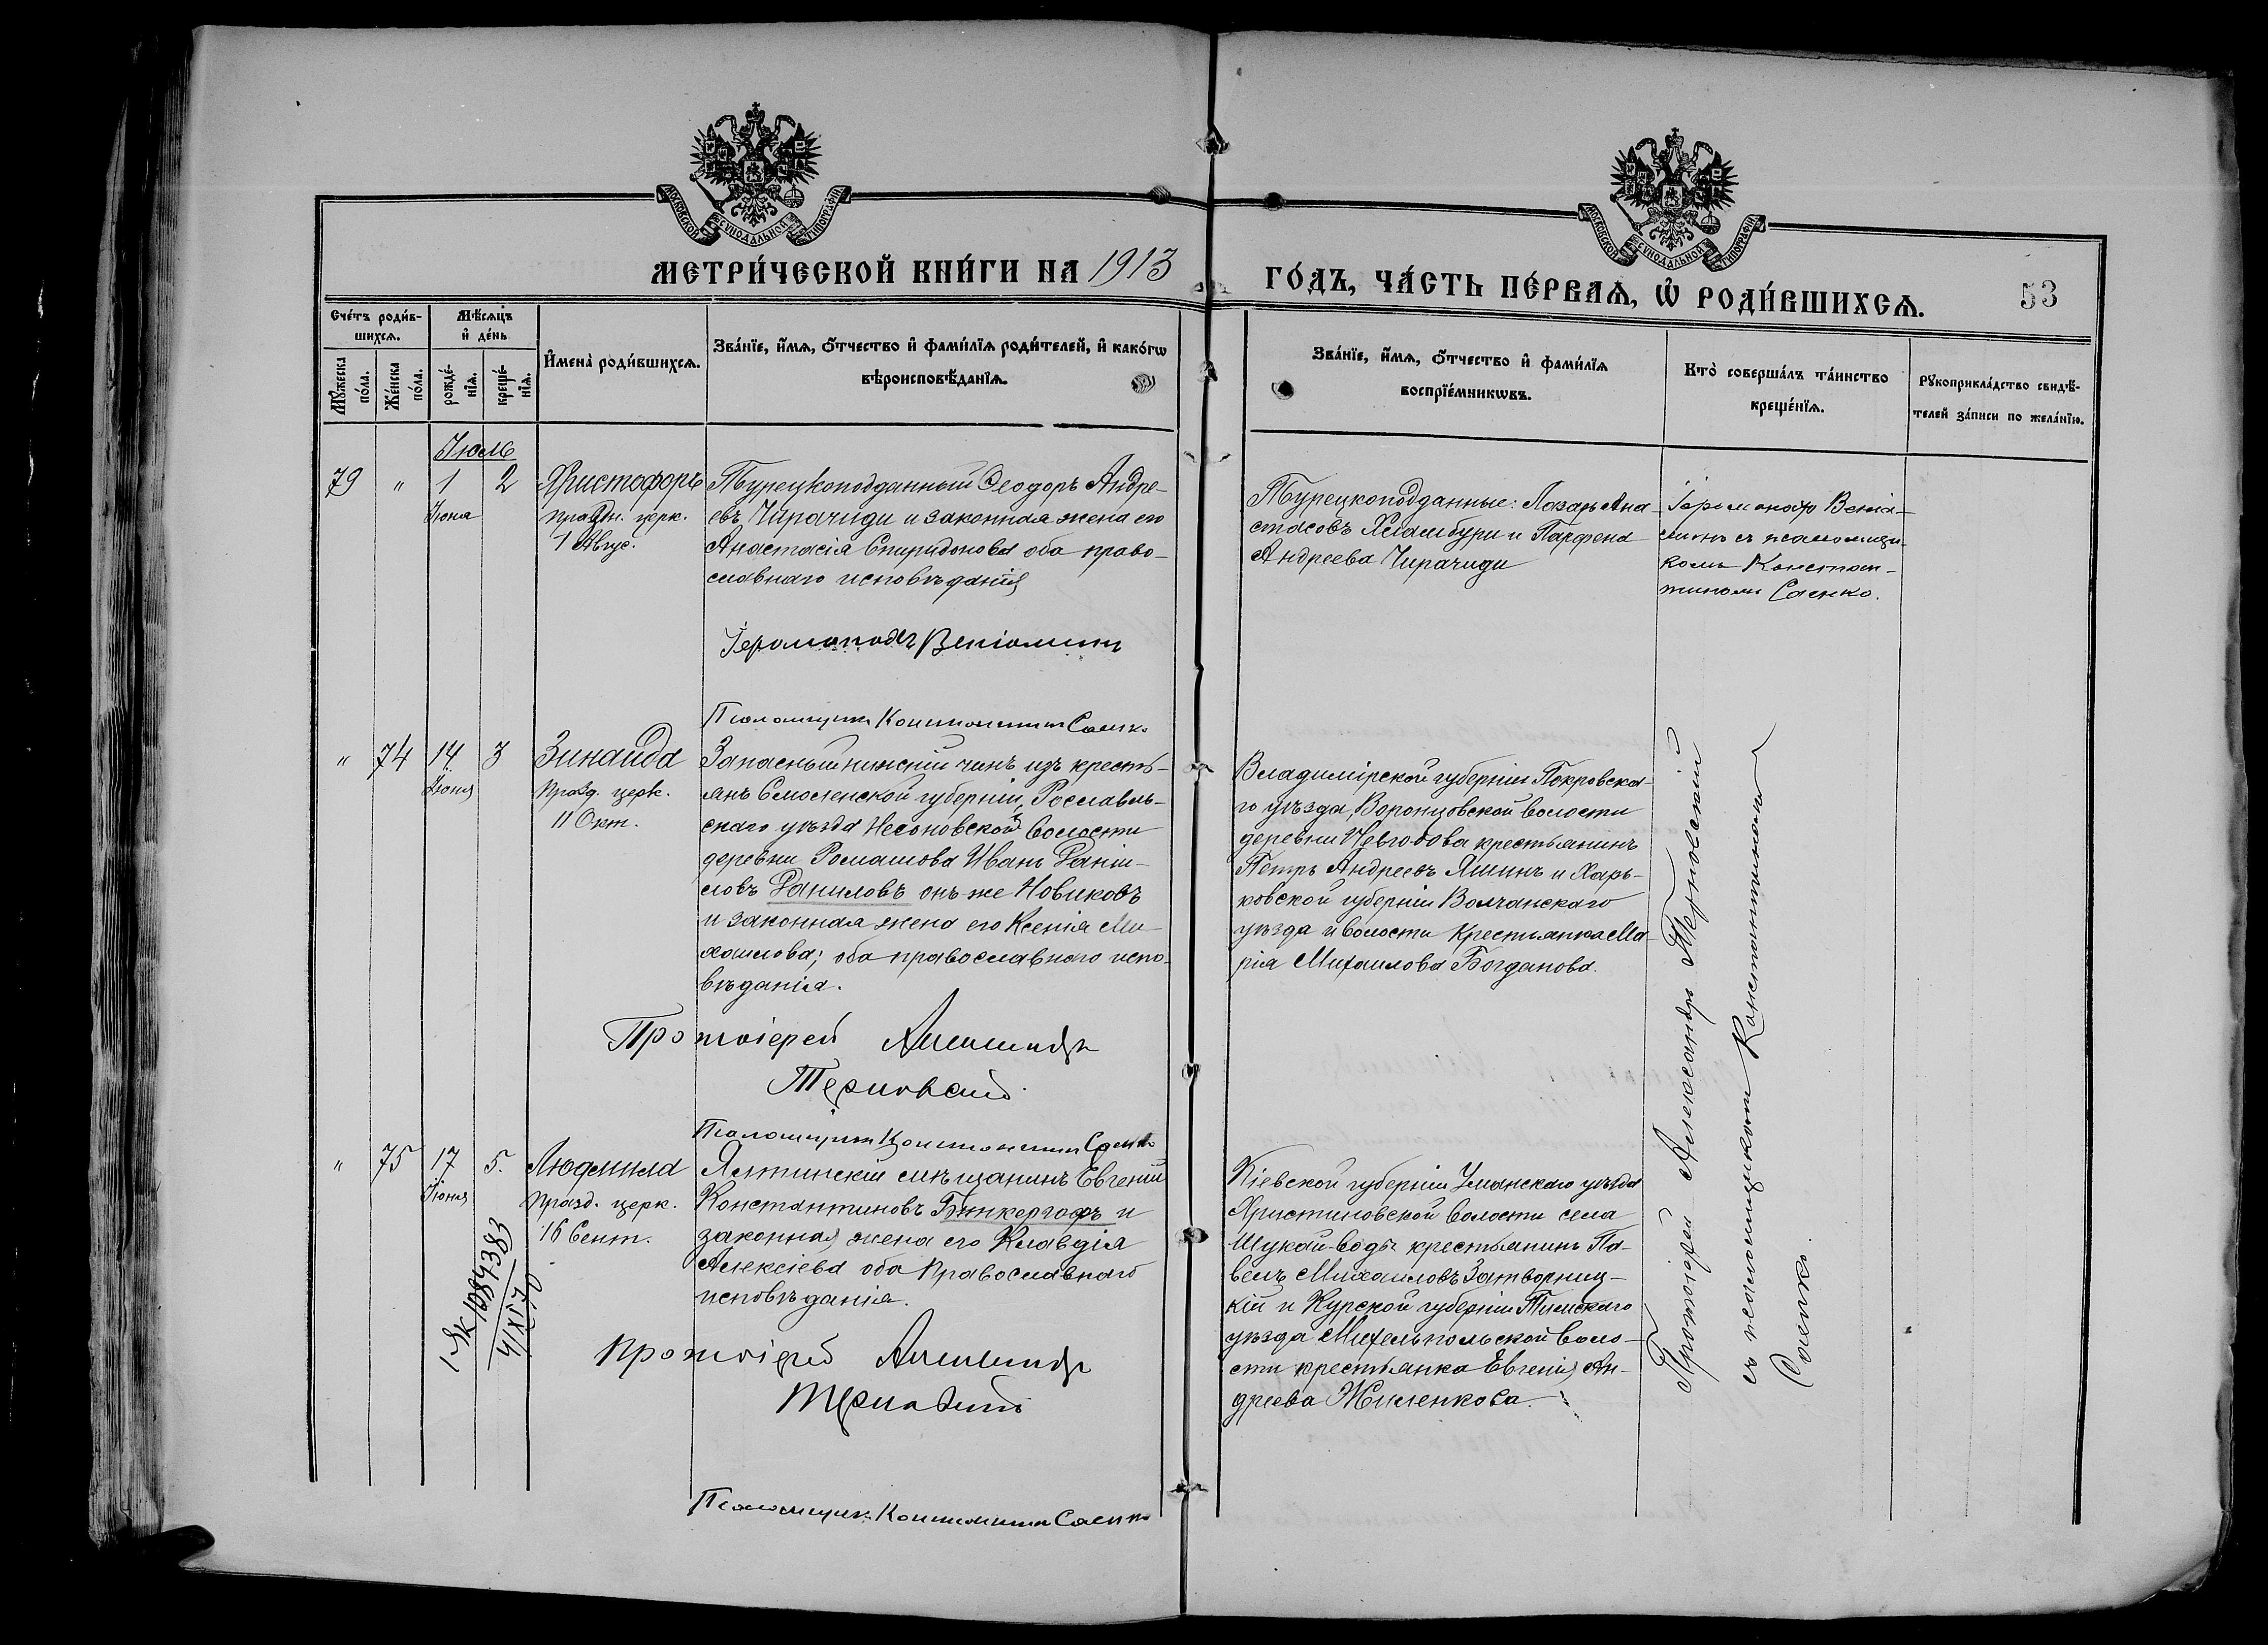 МОСКОВСКОЙ СѴНОДАЛЬНОЙ ТИПОГРАФІИ
МОСКОВСКОЙ СѴНОДАЛЬНОЙ ТИПОГРАФІИ
МЕТРИ́ЧЕСКОЙ КНИ́ГИ НА 1913
ГО́ДЪ, ЧА́СТЬ ПЕ́РВАѦ, Ѡ҆ РОДИ́ВШИХСѦ.
53
Сче́тъ роди́в-
шихсѧ.
Мѣ́сѧцъ
и҆ де́нь
Мꙋ́жеска
по́ла.
Же́нска
по́ла.
рожде́-
нїѧ.
креще́-
нїѧ.
И҆мена̀ роди́вшихсѧ.
Зва́нїе, и҆́мѧ, ѻ҆́тчество и҆ фами́лїѧ роди́телей, и҆ како́гѡ
вѣроисповѣ́данїѧ.
Зва́нїе, и҆́мѧ, ѻ҆́тчество и҆ фами́лїѧ
воспрїе́мникѡвъ.
Кто̀ соверша́лъ та́инство
креще́нїѧ.
Рꙋкоприкла́дство свидѣ́-
телей за́писи по жела́нїю.
Іюль
79 " 1 2
Іюня
Христофоръ
праздн. церк.
1 Авгус.
Турецкоподданный Ѳеодоръ Андре-
евъ Чирачиди и законная жена его
Анастасія Спиридонова оба право-
славнаго исповѣданія
Іеромонахъ Веніаминъ
Псаломщикъ Константинъ Саенко
Турецкоподданные: Лазарь Ана-
стасовъ Хиамбури и Парфена
Андреева Чирачиди
Іеромонахъ Веніа-
минъ съ псаломщи-
комъ Констан-
тиномъ Саенко.
" 74 14 3
Іюня
Зинаида
празд. церк.
11 Окт.
Запасный нижній чинъ изъ кресть-
янъ Смоленской губерніи, Рославль-
скаго уѣзда волости
деревни Ромашова Иванъ Даніи-
ловъ Даниловъ онъ же Новиковъ
и законная жена его Ксенія Ми-
хаилова; оба православнаго испо-
вѣданія.
Протоіерей Александръ
Терновскій
Псаломщикъ Константинъ Саенко
Владимірской губерніи Покровска-
го уѣзда, Воронцовской волости
деревни крестьянинъ
Петръ Андреевъ Яшинъ и Харь-
ковской губерніи Волчанскаго
уѣзда и волости крестьянка Ма-
рія Михаилова Богданова.
Протоіерей Александръ Терновскій
съ псаломщикомъ Константиномъ
Саенко.
" 75 17 5.
Іюня
Людмила
празд. церк.
16 Сент.
Ялтинскій мѣщанинъ Евгеній
Константиновъ Бинкергофъ и
законная жена его Клавдія
Алексіева оба православнаго
исповѣданія.
Протоіерей Александръ
Терновскій
Псаломщикъ Константинъ Саенко
Кіевской губерніи Уманскаго уѣзда
Христиновской волости села
Шукай-воды крестьянинъ Па-
велъ Михаиловъ Затворниц-
кій и Курской губерніи Тимскаго
уѣзда Михельпольской воло-
сти крестьянка Евгенія Ан-
дреева Жиленкова.